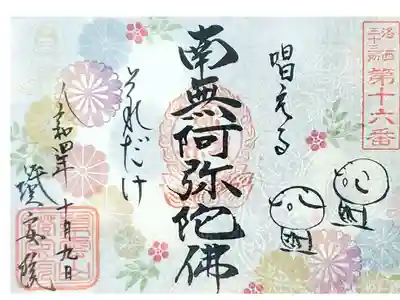 洛西
三十三所
第十六番
唱える
南無阿弥陀佛
それだけ
令和四年十月九日